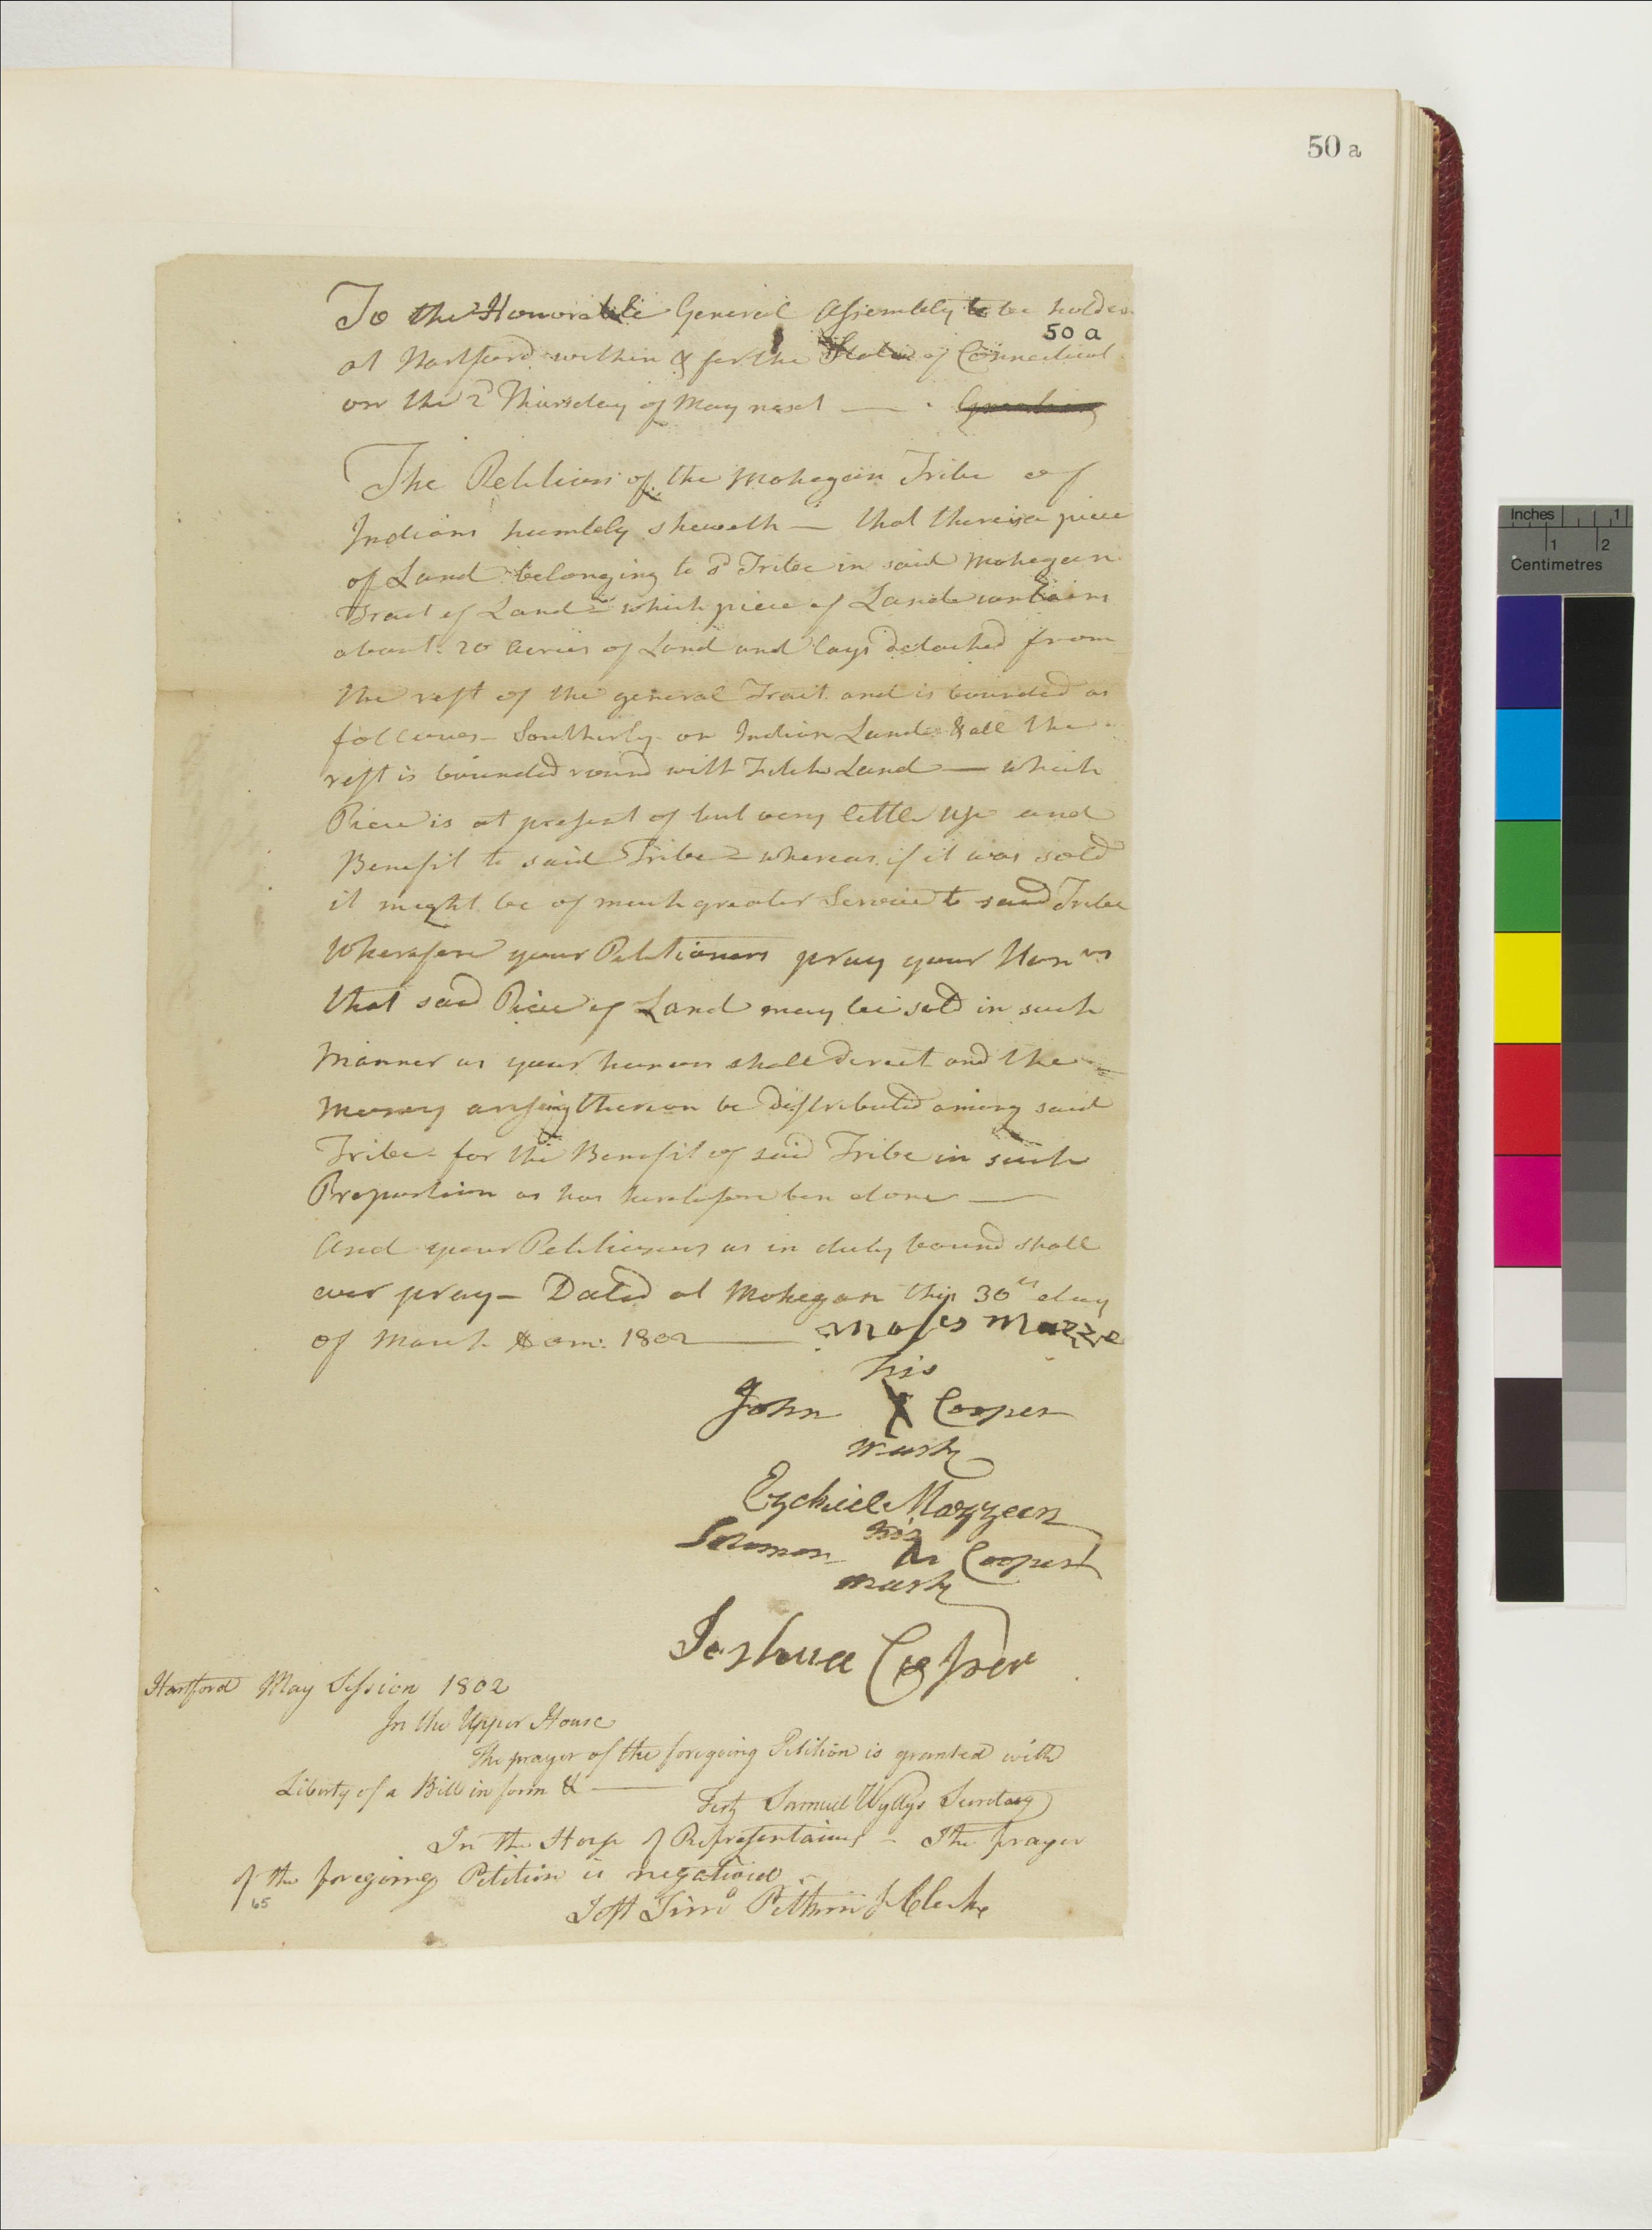 50 a
To the Honorable General Assembly to be holden
50 a
at Hartford within & for the State of Connecticut
on the 2d Thursday of May next — Greeting
The Petition of the Mohegan Tribe of
Indians humbly sheweth — that there is a piece
of Land belonging to sd Tribe in said Mohegan
Tract of Land — which piece of Land contains
about 20 Acres of Land and lays detached from
the rest of the general Tract and is bounded as
follows — Southerly on Indian Land & all the
rest is bounded round with Fitch Land — which
Piece is at present of but very little use and
Benefit to said Tribe — whereas if it was sold
it might be of much greater Service to said Tribe
Wherefore your Petitioners pray your Honrs
that said Piece of Land may be sold in such
Manner as your honors shall direct and the
Money arising thereon be distributed among said
Tribe for the Benefit of said Tribe in such
Proportion as has heretofore ben done —
And your Petitioners as in duty bound shall
ever pray — Dated at Mohegan this 30th day
of March 1802 — Moses Mazze
his
John X Cooper
mark
Ezekiel Mazzeen
his
Solomon Cooper
mark
Joshua Cooper
Hartford May Session 1802
In the Upper House
The prayer of the foregoing Petition is granted with
Liberty of a Bill in form &
Test Samuel Wyllys Secretary
In the House of Representatives — The prayer
of the foregoing Petition is negatived
65
Test Timo Pitkin Jr Clerk
Inches 1
1 2
Centimetres